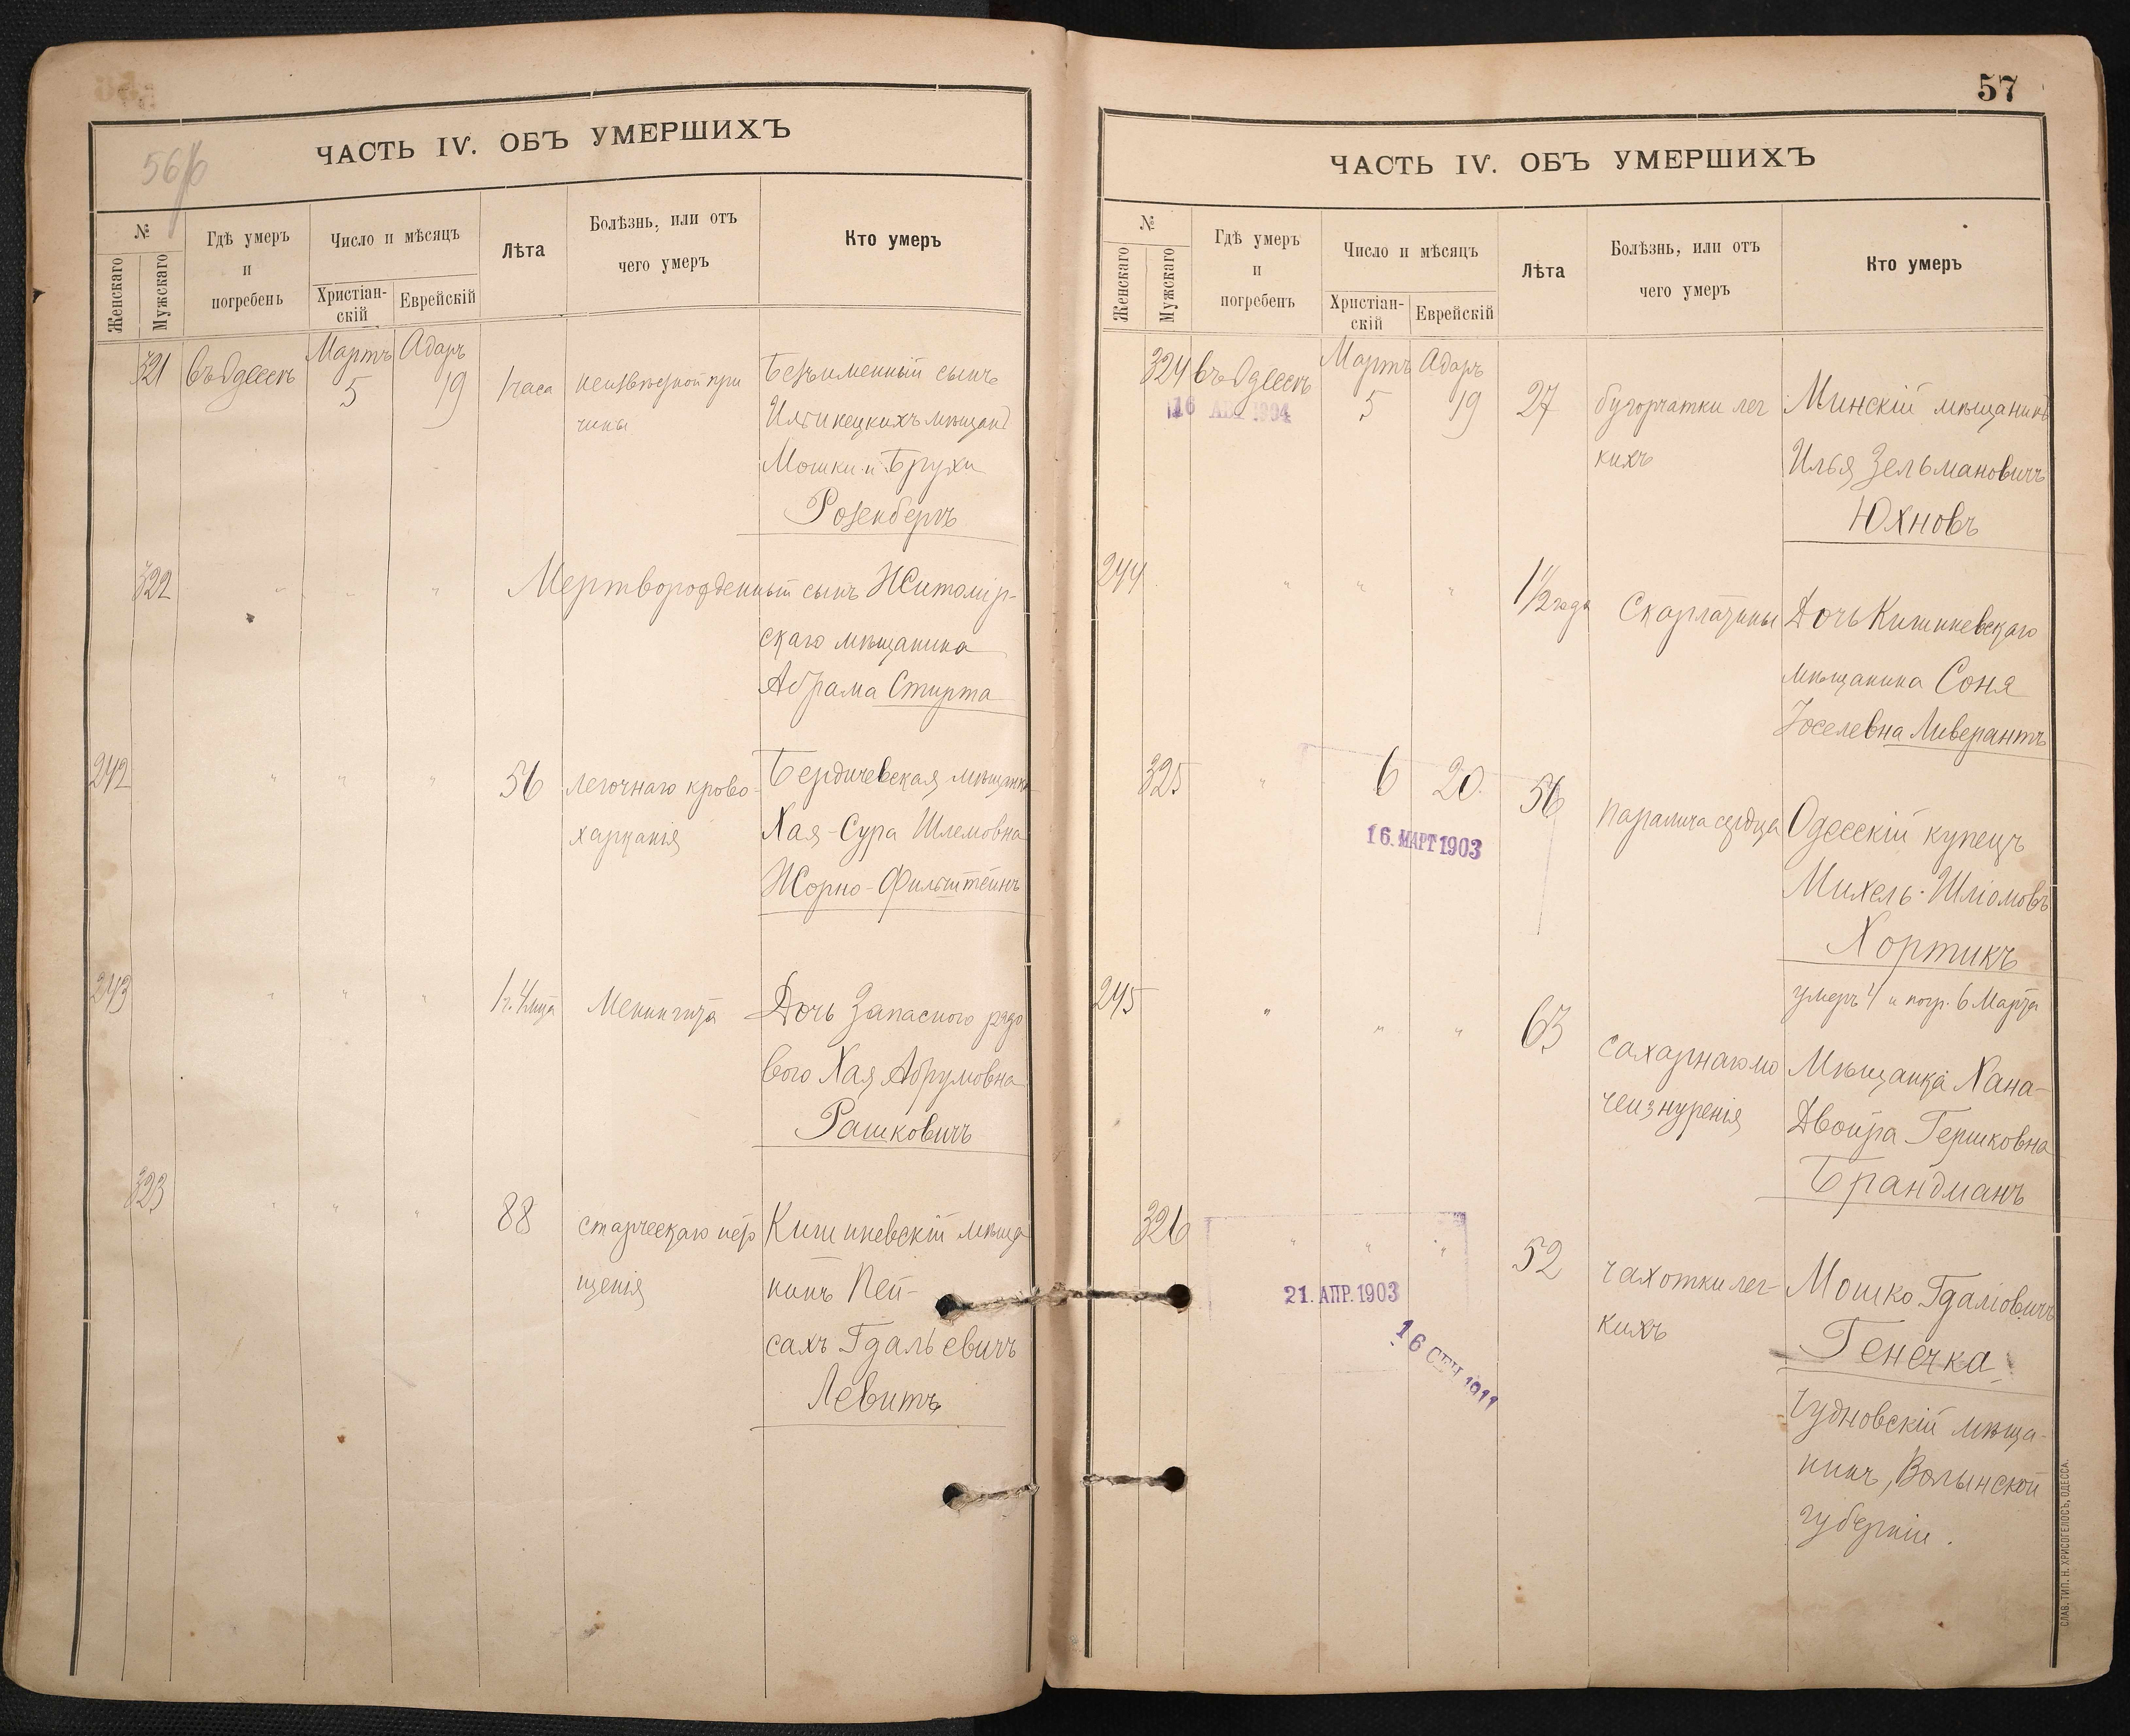 56/б
ЧАСТЬ IV. ОБЪ УМЕРШИХЪ
№
Женскаго
Мужскаго
Гдѣ умеръ
и
погребенъ
Число и мѣсяцъ
Христіан-
скій
Еврейскій
Лѣта
Болѣзнь, или отъ
чего умеръ
Кто умеръ
321 въ Одессѣ Мартъ 5 Адаръ 19 1 часа неизвѣстной при Безъименный сынъ
чины мѣщанъ
Мошки и Брухи
Розенбергъ
322 " " " Мертворожденный сынъ Житомір-
скаго мѣщанина
Абрама Стирта
242 " " " 56 легочнаго крово- Бердичевская мѣщанка
харканія Хая-Сура Шлемовна
Жорно-Фильштейнъ
243 " " " 1 г. 4 мца Менингита Дочь Запаснаго рядо
вого Хая Абрумовна
Рашковичъ
323 " " " 88 старческаго Кишиневскій мѣща
щенія нинъ Пей-
сахъ Гдальевичъ
Левитъ
57
ЧАСТЬ IV. ОБЪ УМЕРШИХЪ
№
Женскаго
Мужскаго
Гдѣ умеръ
и
погребенъ
Число и мѣсяцъ
Христіан-
скій
Еврейскій
Лѣта
Болѣзнь, или отъ
чего умеръ
Кто умеръ
324 въ Одессѣ Мартъ 5 Адаръ 19 27 бугорчатки лег Минскій мѣщанинъ
16 1904
кихъ Илья Зельмановичъ
Юхновъ
244 " " " 1 1/2 года Скарлатины Дочь Кишиневскаго
мѣщанина Соня
Іоселевна Ливерантъ
325 " 6 20 56 паралича сердца Одесскій купецъ
16. МАРТ 1903
Михель-Шліомовъ
Хортикъ
умеръ 4 и погр. 6 Марта
245 " " " 63 сахарнаго мо Мѣщанка Хана-
чеизнуренія Двойра Гершковна
Брандманъ
326 " " " 52 чахотки лег- Мошко Гдаліовичъ
21. АПР. 1903
кихъ Генечка
16 СЕН 1911
Чудновскій мѣща-
нинъ, Волынской
губерніи.
СЛАВ. ТИП. Н. ХРИСОГЕЛОСЪ, ОДЕССА.